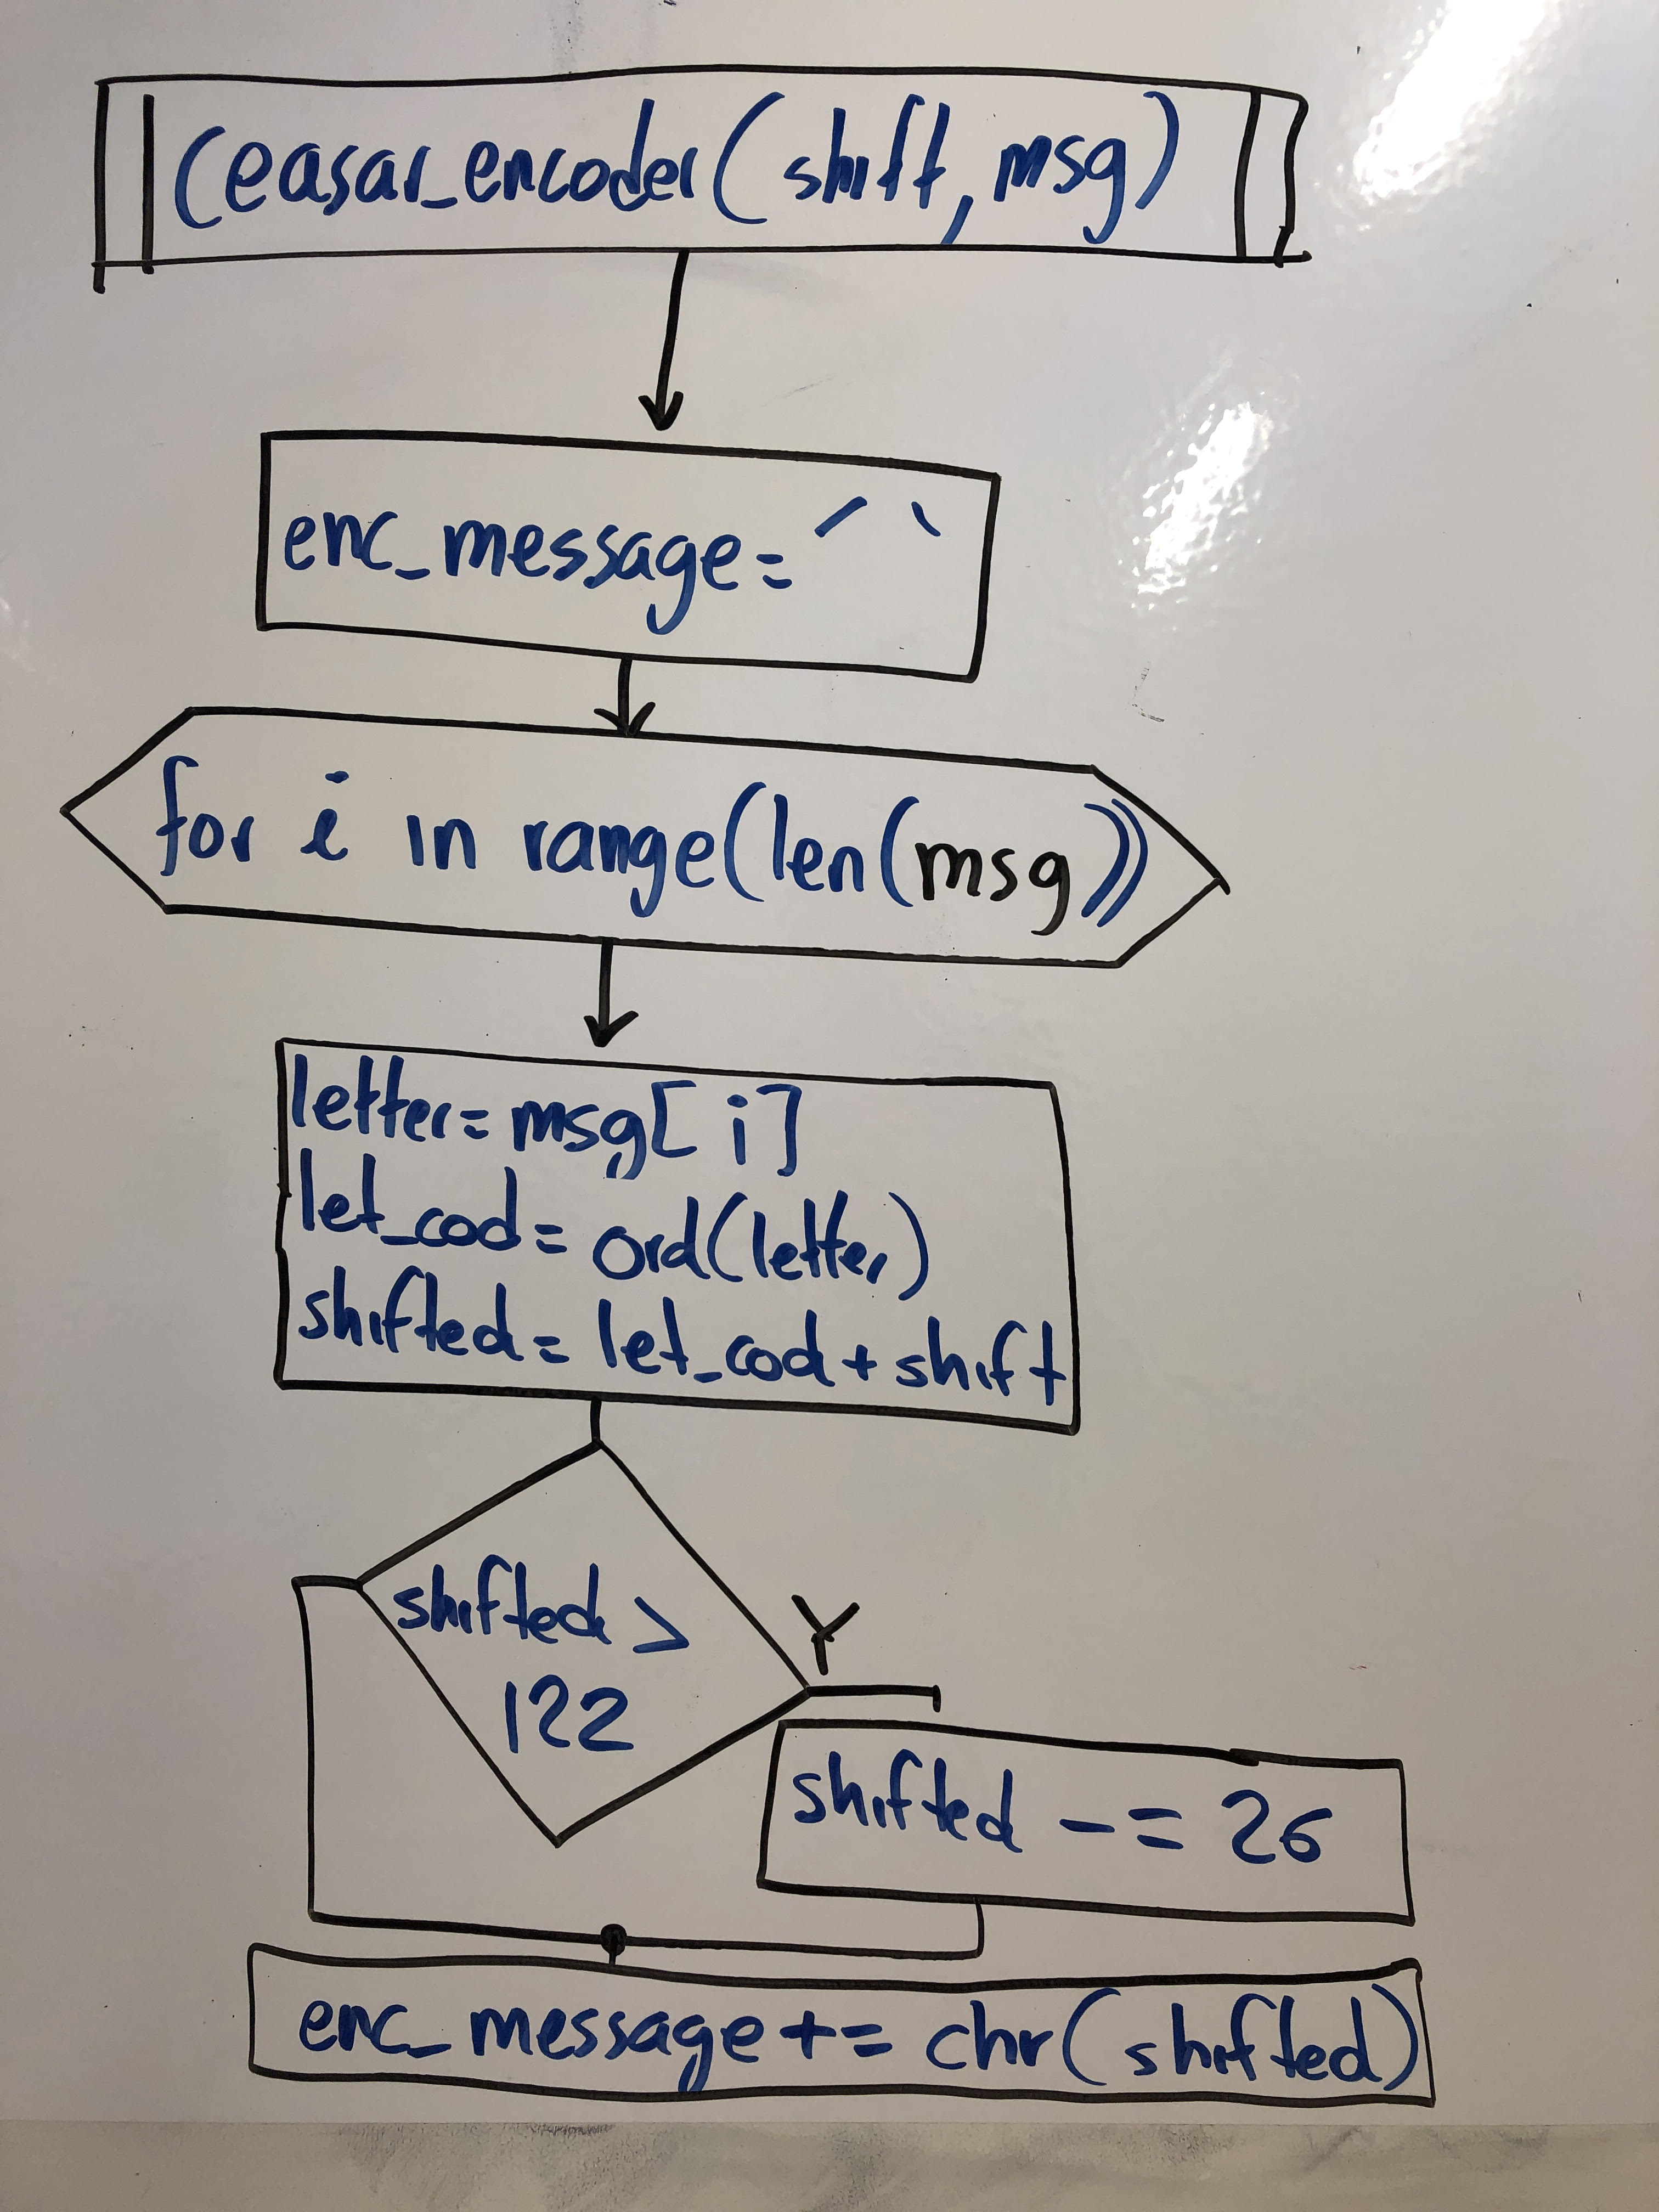 Ceasar_encoder(shift, msg)
enc_message= ' '
for i in range(len(msg))
letter= msg[i]
let_cod= ord(letter)
shifted= let_cod+shift
shifted >
122
Y
shifted -= 26
enc_message += chr(shifted)